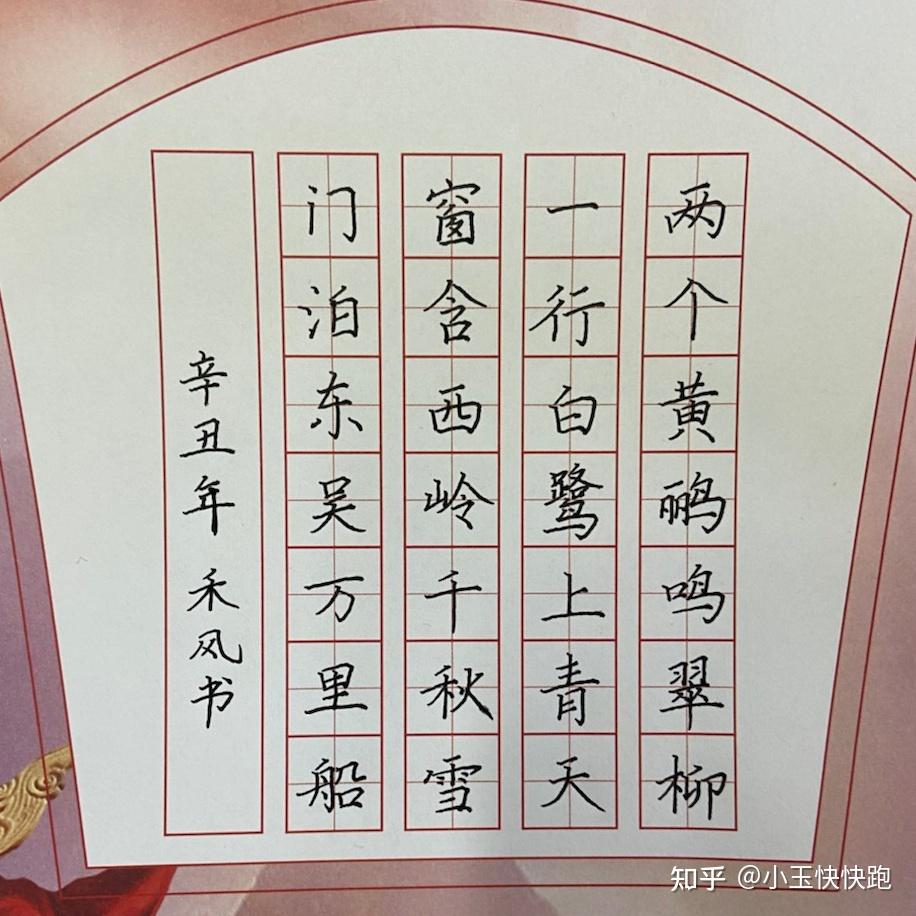 两个黄鹂鸣翠柳
一行白鹭上青天
窗含西岭千秋雪
门泊东吴万里船
辛丑年 禾风书
知乎 @小玉快快跑